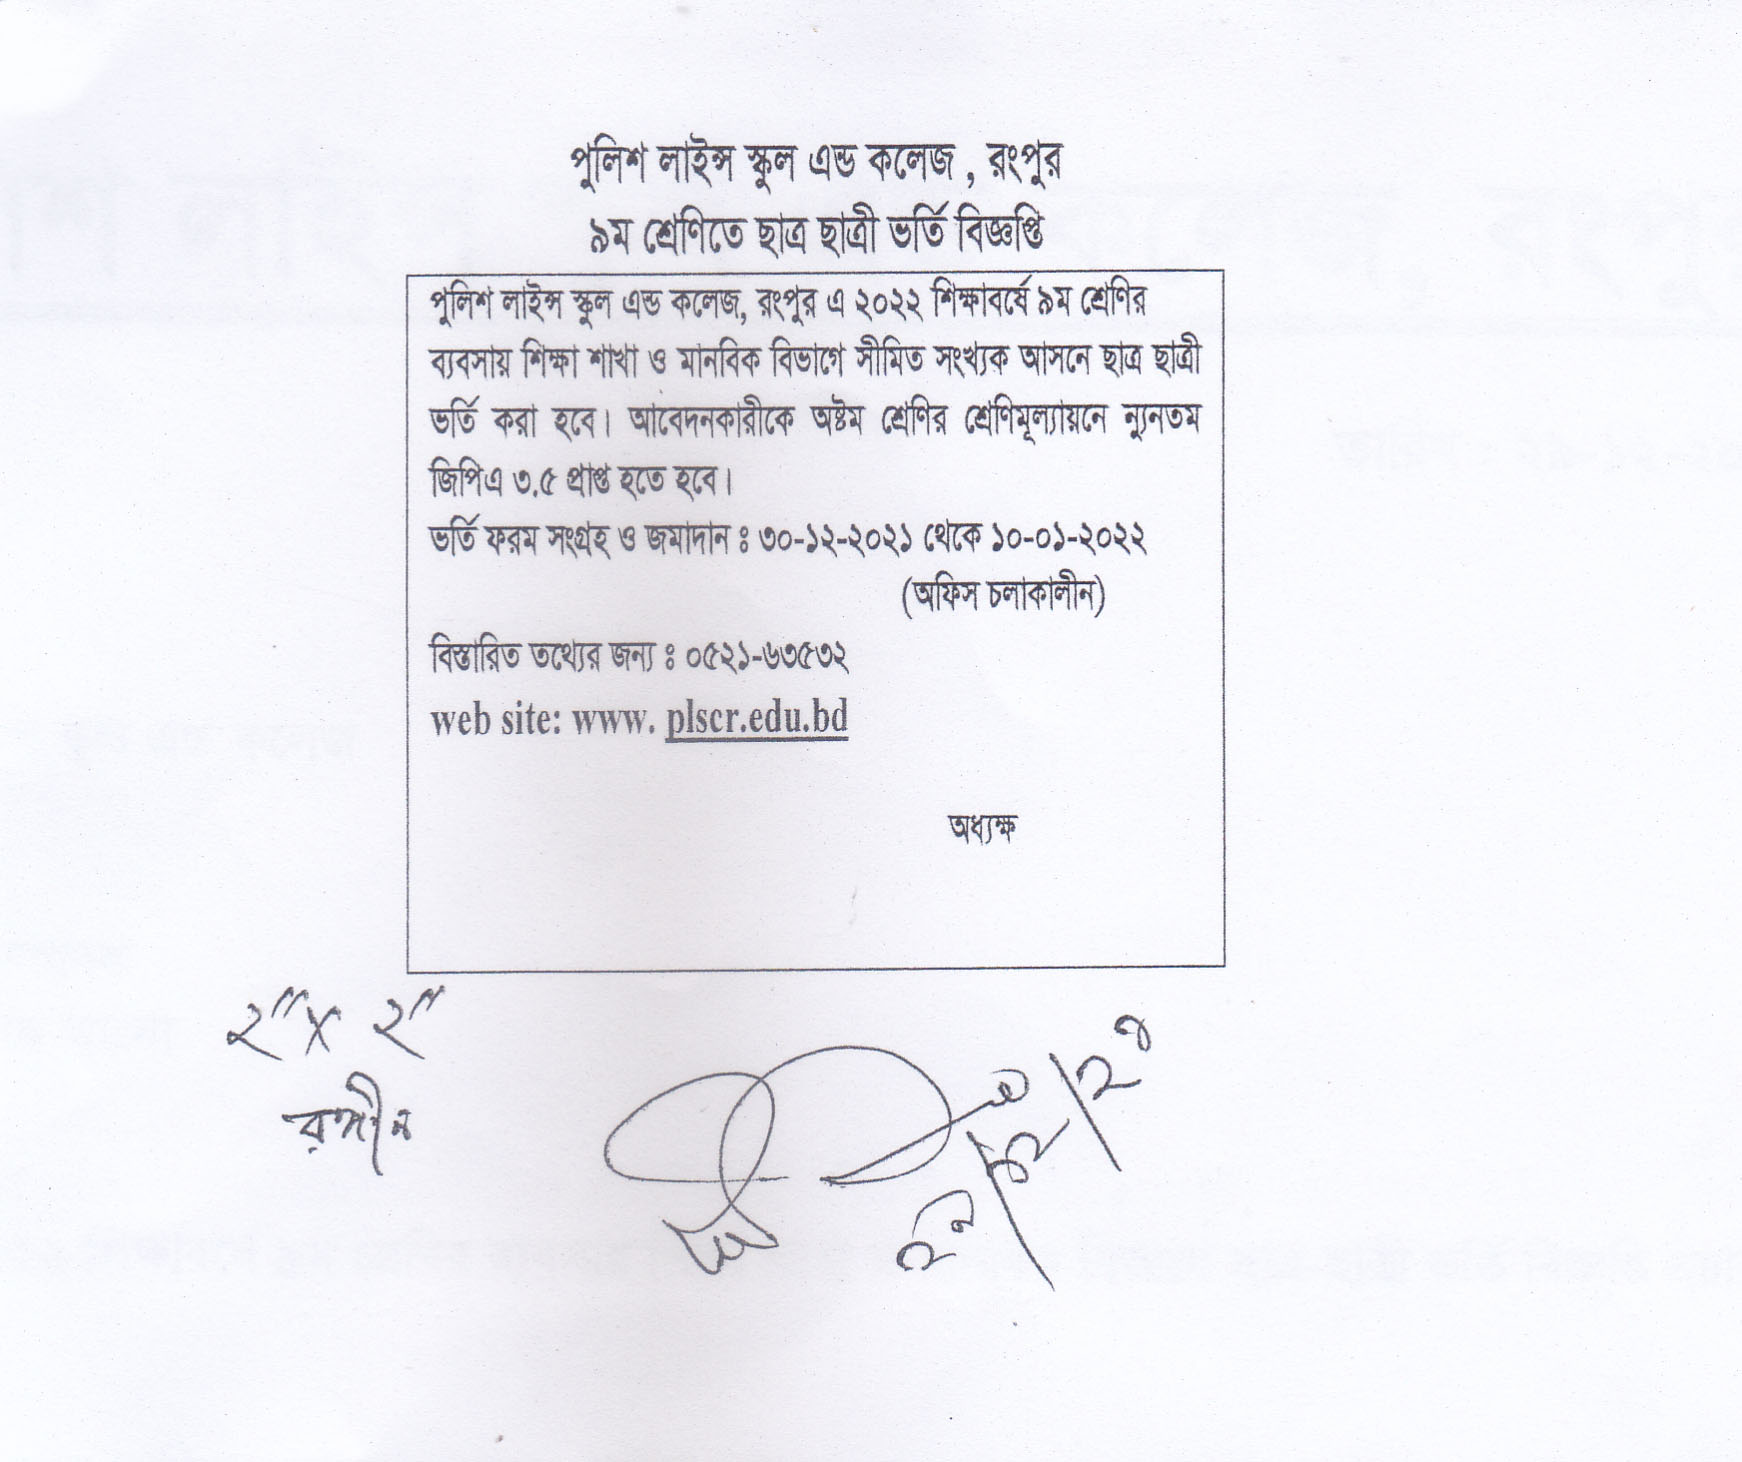 পুলিশ লাইন্স স্কুল এন্ড কলেজ , রংপুর
৯ম শ্রেণিতে ছাত্র ছাত্রী ভর্তি বিজ্ঞপ্তি
পুলিশ লাইন্স স্কুল এন্ড কলেজ, রংপুর এ ২০২২ শিক্ষাবর্ষে ৯ম শ্রেণির
ব্যবসায় শিক্ষা শাখা ও মানবিক বিভাগে সীমিত সংখ্যক আসনে ছাত্র ছাত্রী
ভর্তি করা হবে। আবেদনকারীকে অষ্টম শ্রেণির শ্রেণিমূল্যায়নে ন্যুনতম
জিপিএ ৩.৫ প্রাপ্ত হতে হবে।
ভর্তি ফরম সংগ্রহ ও জমাদান ঃ ৩০-১২-২০২১ থেকে ১০-০১-২০২২
(অফিস চলাকালীন)
বিস্তারিত তথ্যের জন্য ঃ ০৫২১-৬৩৫৩২
web site: www. plscr.edu.bd
অধ্যক্ষ
২"X ২"
রঙ্গীন
২৯/১২/২১